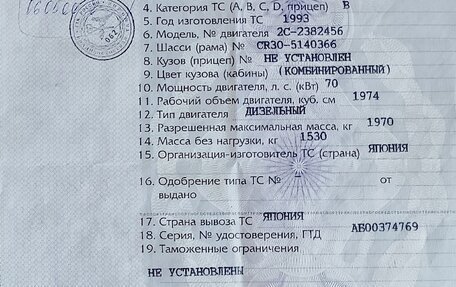 4. Категория ТС (A, B, C, D, прицеп) B
5. Год изготовления ТС 1993
6. Модель, № двигателя 2C-2382456
7. Шасси (рама) № CR30-5140366
8. Кузов (прицеп) № НЕ УСТАНОВЛЕН
9. Цвет кузова (кабины) (КОМБИНИРОВАННЫЙ)
10. Мощность двигателя, л. с. (кВт) 70
11. Рабочий объем двигателя, куб. см 1974
12. Тип двигателя ДИЗЕЛЬНЫЙ
13. Разрешенная максимальная масса, кг 1970
14. Масса без нагрузки, кг 1530
15. Организация-изготовитель ТС (страна) ЯПОНИЯ
16. Одобрение типа ТС № – от
выдано
17. Страна вывоза ТС ЯПОНИЯ
18. Серия, № удостоверения, ГТД АБ00374769
19. Таможенные ограничения
НЕ УСТАНОВЛЕНЫ